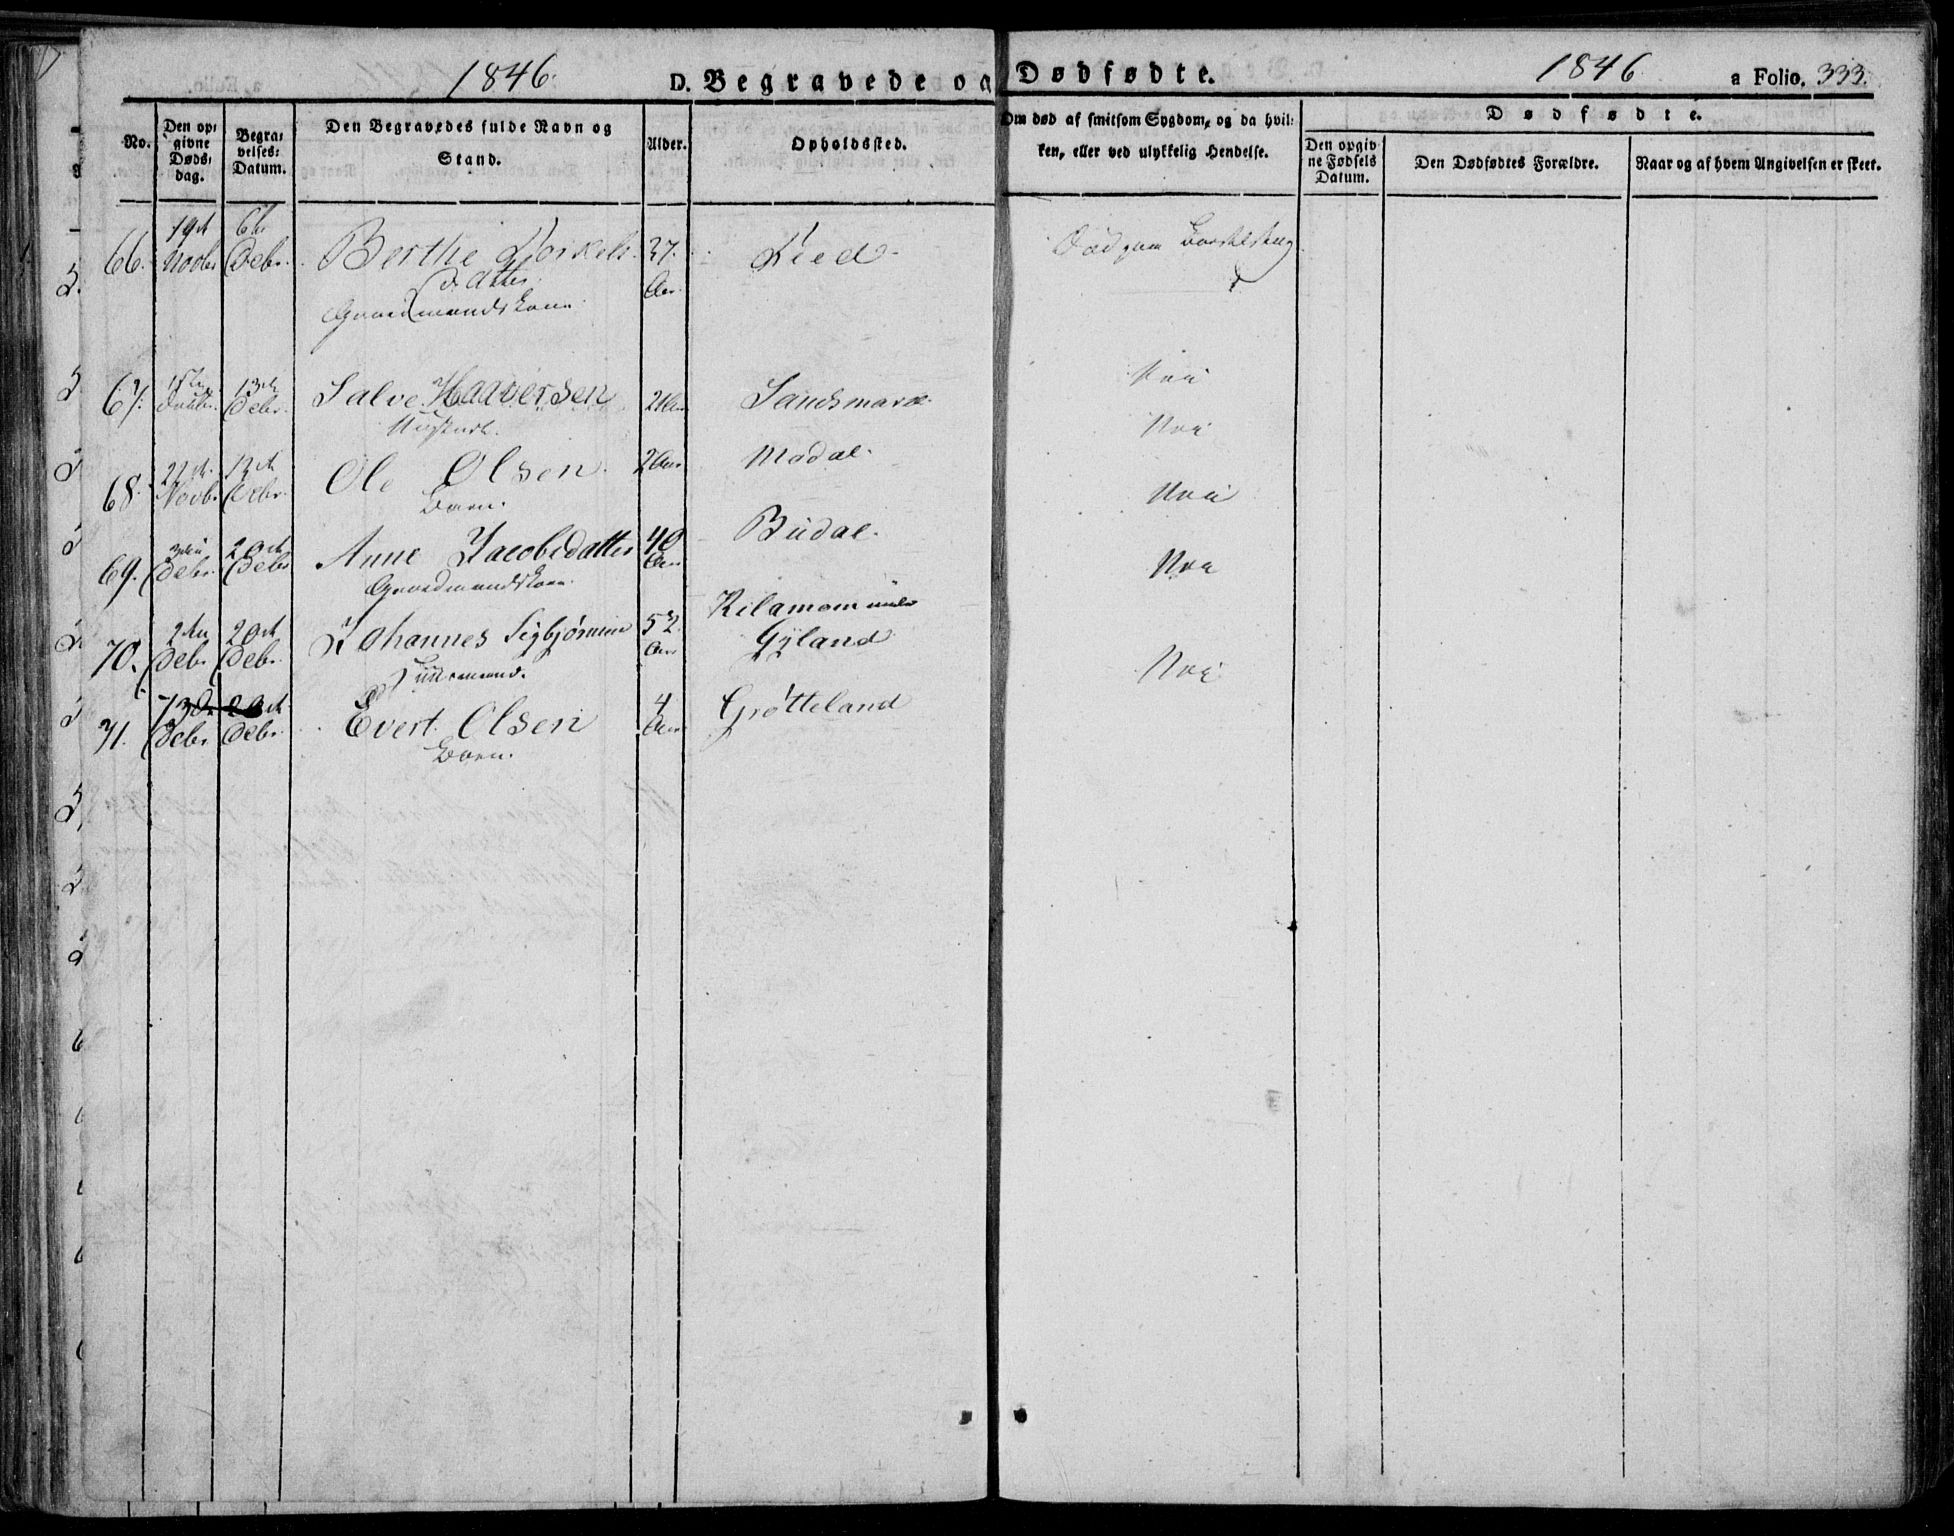 1846.
D. Begravede og Dødfødte.
1846
a Folio. 333.
No.
Den op:
givne
Døds:
dag.
Begra:
velses:
Datum.
Den Begravedes fulde Navn og
Stand.
Alder.
Opholdssted.
Om død af smitsom Sygdom, og da hvil:
ken, eller ved ulykkelig Hendelse.
Dødfødte.
Den opgiv
ne Fødsels
Datum.
Den Dødfødtes Forældre.
Naar og af hvem Angivelsen er skeet.
66. 19de Novbr 6te Debr. Berthe Torkels 37. Aar Qied
Datter
Gaardmandskone
Død paa Barselseng
67. Debr. 13de Salve Haaversen 21 Aar Sandsmark
Nei
68. 22de Novbr 13de Debr. Ole Olsen. 2 Aar Modal.
Barn.
Nei
69. 3die Debr. 20de Debr Anne Jacobsdatter 40 Aar Büdal.
Gaardmandskone.
Nei
70. 2den Debr 20de Debr. Johannes Sigbjørnsen 52 Aar
Gÿland
Huusmand.
Nei
71. 13de Debr 20de Debr. Evert Olsen 4 Aar Grøtteland
Barn.
Nei